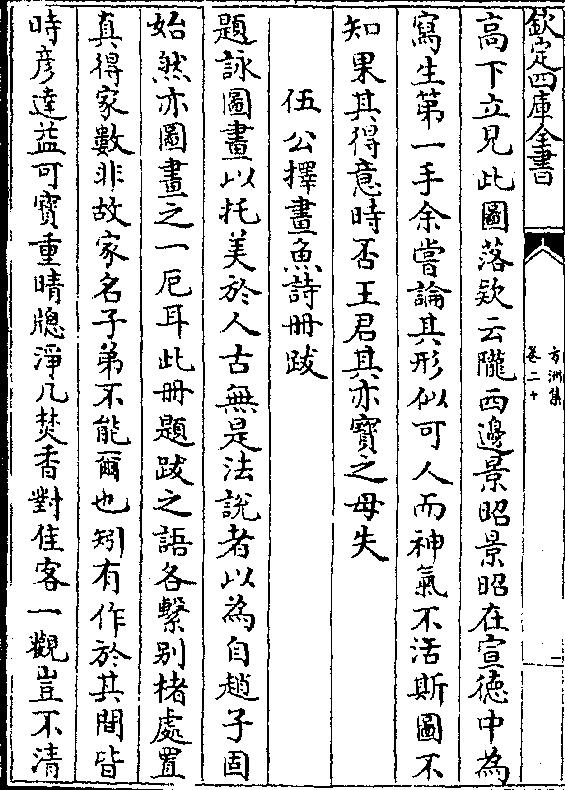 欽定四庫全書
方洲集
卷二十
高下立見此圖落欵云隴西邊景昭景昭在宣德中為
寫生第一手余嘗論其形似可人而神氣不活斯圖不
知果其得意時否王君其亦寳之毋失
伍公擇畫魚詩冊跋
題詠圖畫以托美於人古無是法說者以為自趙子固
始然亦圖畫之一厄耳此冊題跋之語各繫别楮處置
真得家數非故家名子弟不能爾也矧有作於其間皆
時彥達益可寳重晴牕淨几焚香對佳客一觀豈不清